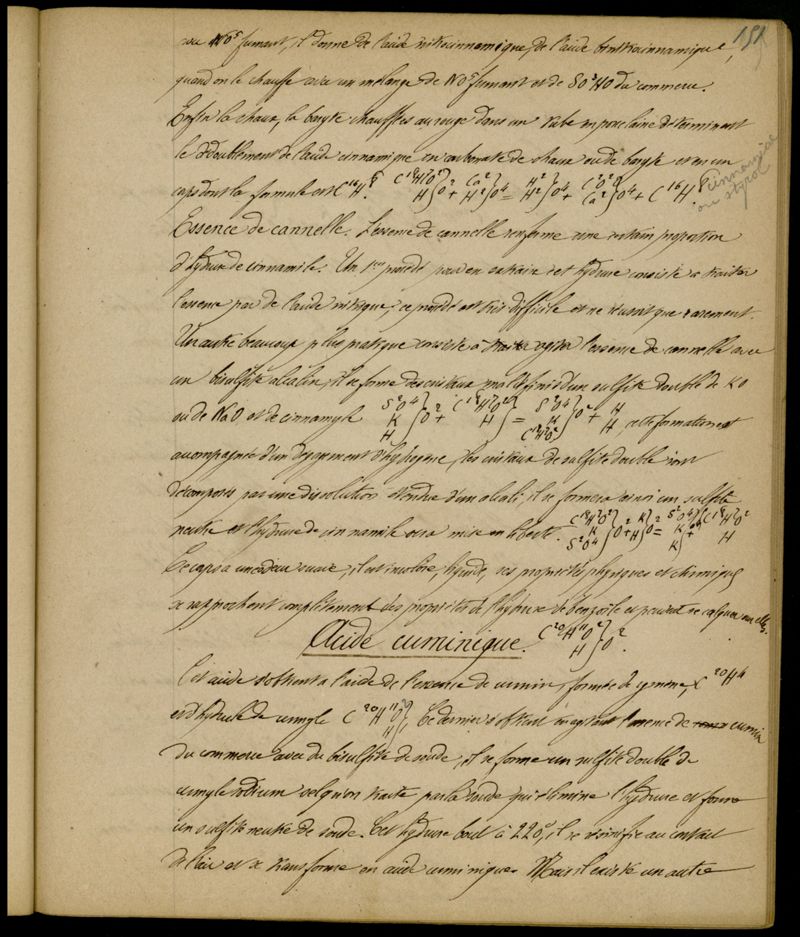 151
avec NO⁵ fumant, il donne de l'acide nitrocinnamique, de l'acide binitrocinnamique,
quand on le chauffe avec un mélange de NO⁵ fumant et de SO³HO du commerce.
Enfin la chaux, la baryte chauffées au rouge dans un tube en porcelaine déterminent
le dédoublement de l'acide cinnamique en carbonate de chaux ou de baryte et en un
corps dont la formule est C¹⁶H⁸. C¹⁸H⁷O² H } O² + Ca² H² } O⁴ = H² H² } O⁴ + C²O² Ca² } O⁴ + C¹⁶H⁸.
cinnamène
ou styrol
Essence de cannelle. L'essence de cannelle renferme une certaine proportion
d'hydrure de cinnamile. Un 1er procédé pour en extraire cet hydrure consiste à traiter
l'essence par de l'acide nitrique, ce procédé est très difficile et ne réussit que rarement.
Un autre beaucoup plus pratique consiste à agiter l'essence de cannelle avec
un bisulfite alcalin, il se forme des cristaux mal définis d'un sulfite double de KO
ou de NaO et de cinnamyle S²O⁴ K H } O² + C¹⁸H⁷O² H } = S²O⁴ K C¹⁸H⁷O² } O² + H H, cette formation est
accompagnée d'un dégagement d'hydrogène, les cristaux de sulfite double sont
décomposés par une dissolution étendue d'un alcali, il se formera ainsi un sulfite
neutre et l'hydrure de cinnamile sera mise en liberté. C¹⁸H⁷O² K S²O⁴ } O² + K H } O² = S²O⁴ K K } O⁴ + C¹⁸H⁷O² H
Ce corps a une odeur suave, il est incolore, liquide, ses propriétés physiques et chimiques
se rapprochent complètement des propriétés de l'hydrure de benzoile et peuvent se calquer sur elles.
Acide cuminique. C²⁰H¹¹O² H } O².
Cet acide s'obtient à l'aide de l'essence de cumin, formée de cymène, C²⁰H¹⁴
et d'hydrure de cumyle C²⁰H¹¹O² H }, Ce dernier s'obtient en agitant l'essence de cumin
du commerce avec du bisulfite de soude, il se forme un sulfite double de
cumyle sodium sel qu'on traite par la soude qui élimine l'hydrure et forme
un sulfite neutre de soude. Cet hydrure bout à 220°, il se résinifie au contact
de l'air et se transforme en acide cuminique. Mais il existe un autre